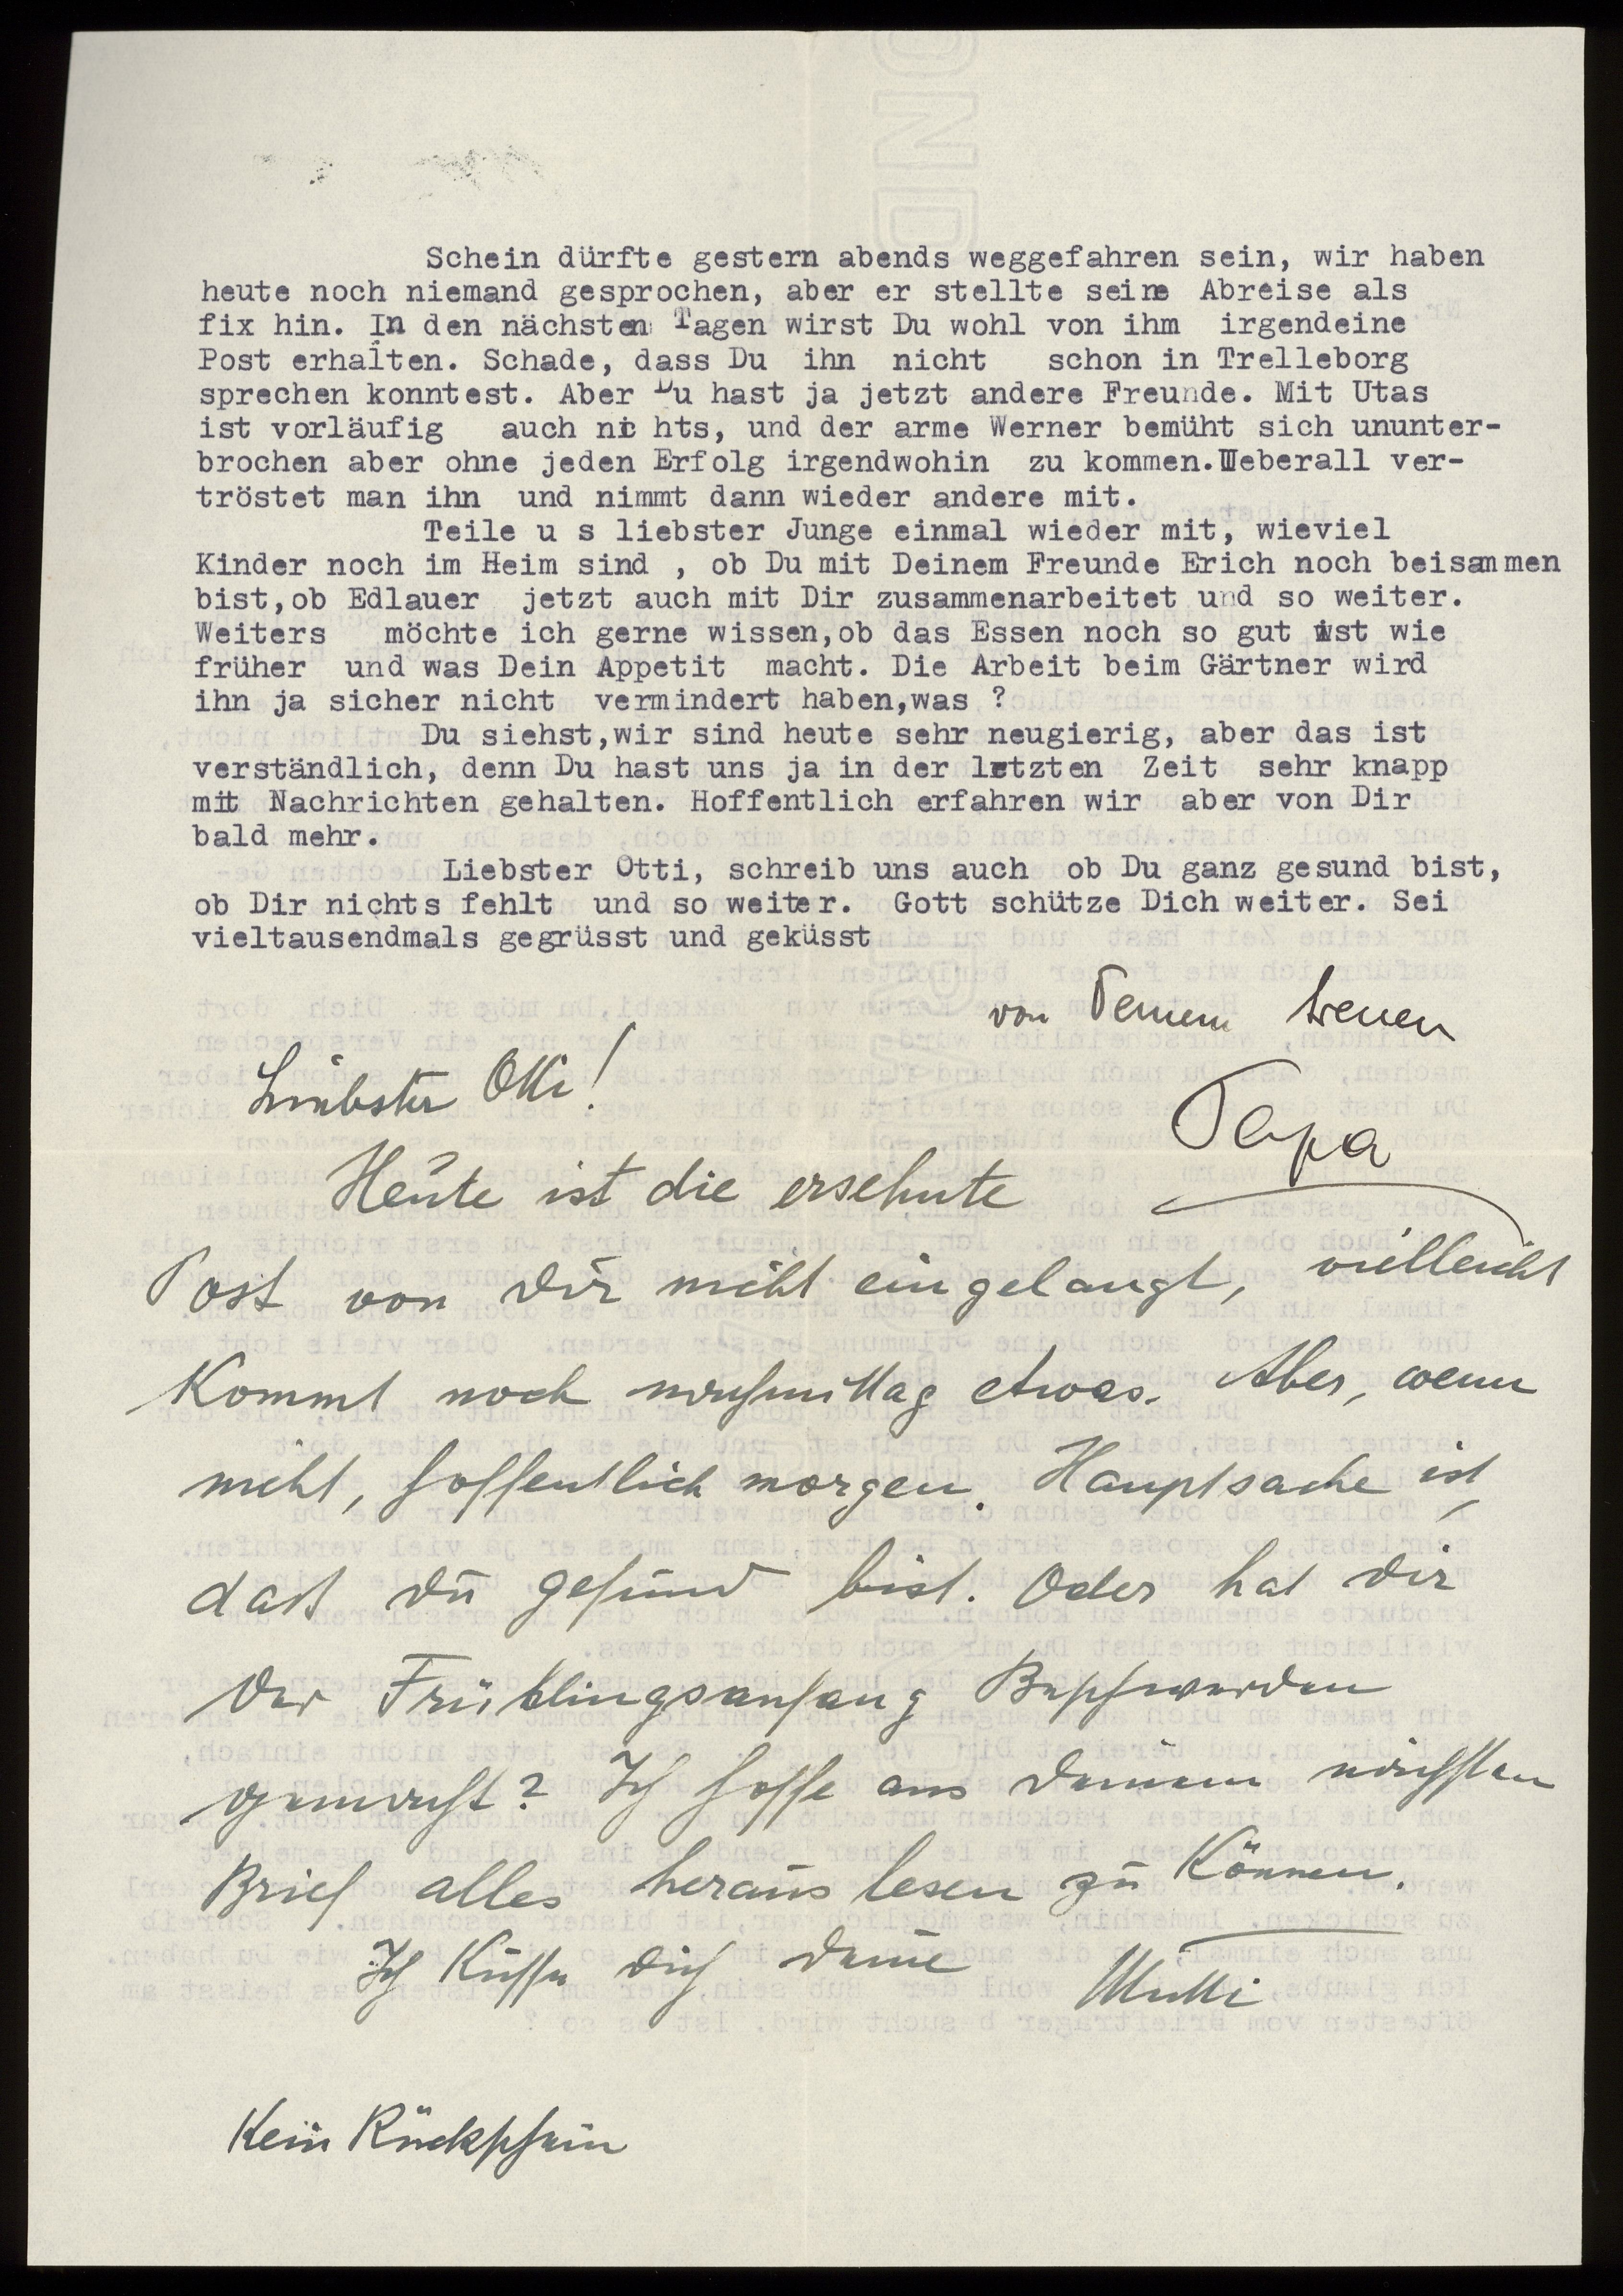 Schein dürfte gestern abends weggefahren sein, wir haben
heute noch niemand gesprochen, aber er stellte seine Abreise als
fix hin. In den nächsten Tagen wirst Du wohl von ihm irgendeine
Post erhalten. Schade, dass Du ihn nicht schon in Trelleborg
sprechen konntest. Aber Du hast ja jetzt andere Freunde. Mit Utas
ist vorläufig auch nichts, und der arme Werner bemüht sich ununter-
brochen aber ohne jeden Erfolg irgendwohin zu kommen. Ueberall ver-
tröstet man ihn und nimmt dann wieder andere mit.
Teile u s liebster Junge einmal wieder mit, wieviel
Kinder noch im Heim sind , ob Du mit Deinem Freunde Erich noch beisammen
bist,ob Edlauer jetzt auch mit Dir zusammenarbeitet und so weiter.
Weiters möchte ich gerne wissen,ob das Essen noch so gut ist wie
früher und was Dein Appetit macht. Die Arbeit beim Gärtner wird
ihn ja sicher nicht vermindert haben,was ?
Du siehst,wir sind heute sehr neugierig, aber das ist
verständlich, denn Du hast uns ja in der letzten Zeit sehr knapp
mit Nachrichten gehalten. Hoffentlich erfahren wir aber von Dir
bald mehr.
Liebster Otti, schreib uns auch ob Du ganz gesund bist,
ob Dir nichts fehlt und so weiter. Gott schütze Dich weiter. Sei
vieltausendmals gegrüsst und geküsst
von Deinem treuen
Papa
Liebster Otti!
Heute ist die ersehnte
Post von Dir nicht eingelangt, vielleicht
kommt noch nachmittag etwas. Aber, wenn
nicht, hoffentlich morgen. Hauptsache ist,
daß Du gesund bist. Oder hat Dir
der Frühlingsanfang Beschwerden
gemacht? Ich hoffe aus Deinem nächsten
Brief alles heraus lesen zu können.
Ich küsse Dich Deine
Mutti
Kein Rückschein